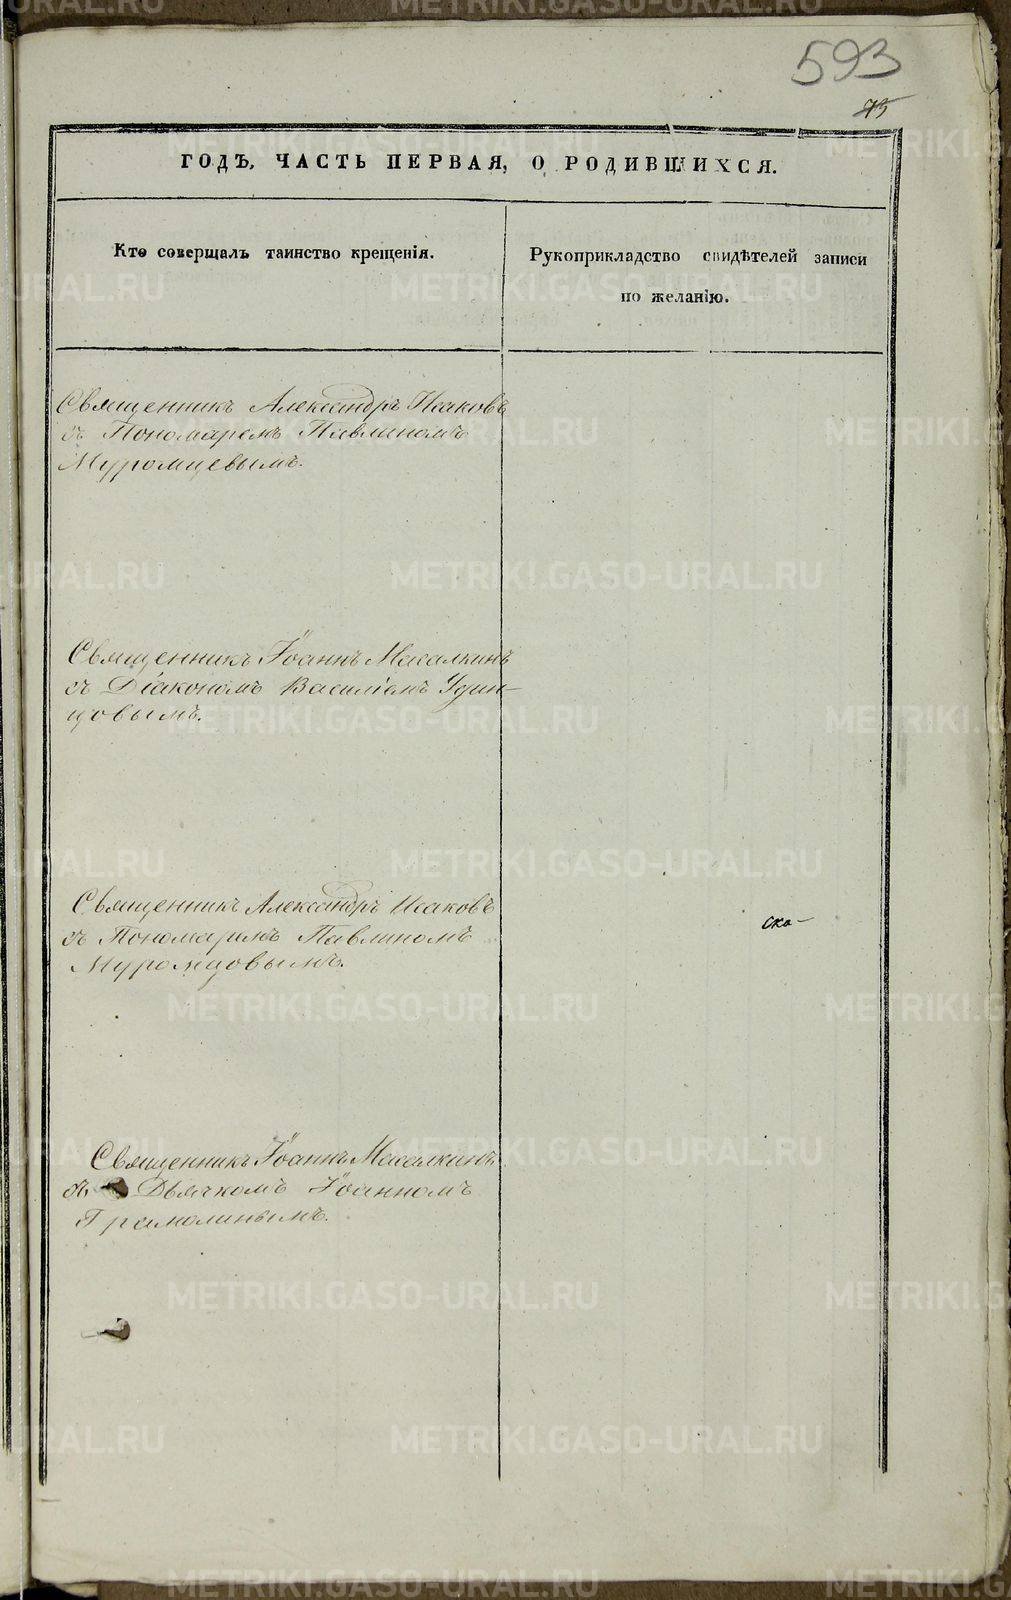 593
75
ГОДЪ, ЧАСТЬ ПЕРВАЯ, О РОДИВШИХСЯ.
Кто совершалъ таинство крещенія.
Рукоприкладство свидѣтелей записи
по желанію.
Священникъ Александръ Исаковъ
съ Пономаремъ Павлиномъ
Муромцевымъ.
Священникъ Іоаннъ Масалкинъ
съ Діакономъ Василіемъ Удин-
цовымъ.
Священникъ Александръ Исаковъ
съ Пономаремъ Павлиномъ
Муромцовымъ.
ско-
Священникъ Іоаннъ Масалкинъ
съ Дьячкомъ Іоанномъ
METRIKI.GASO-URAL.RU